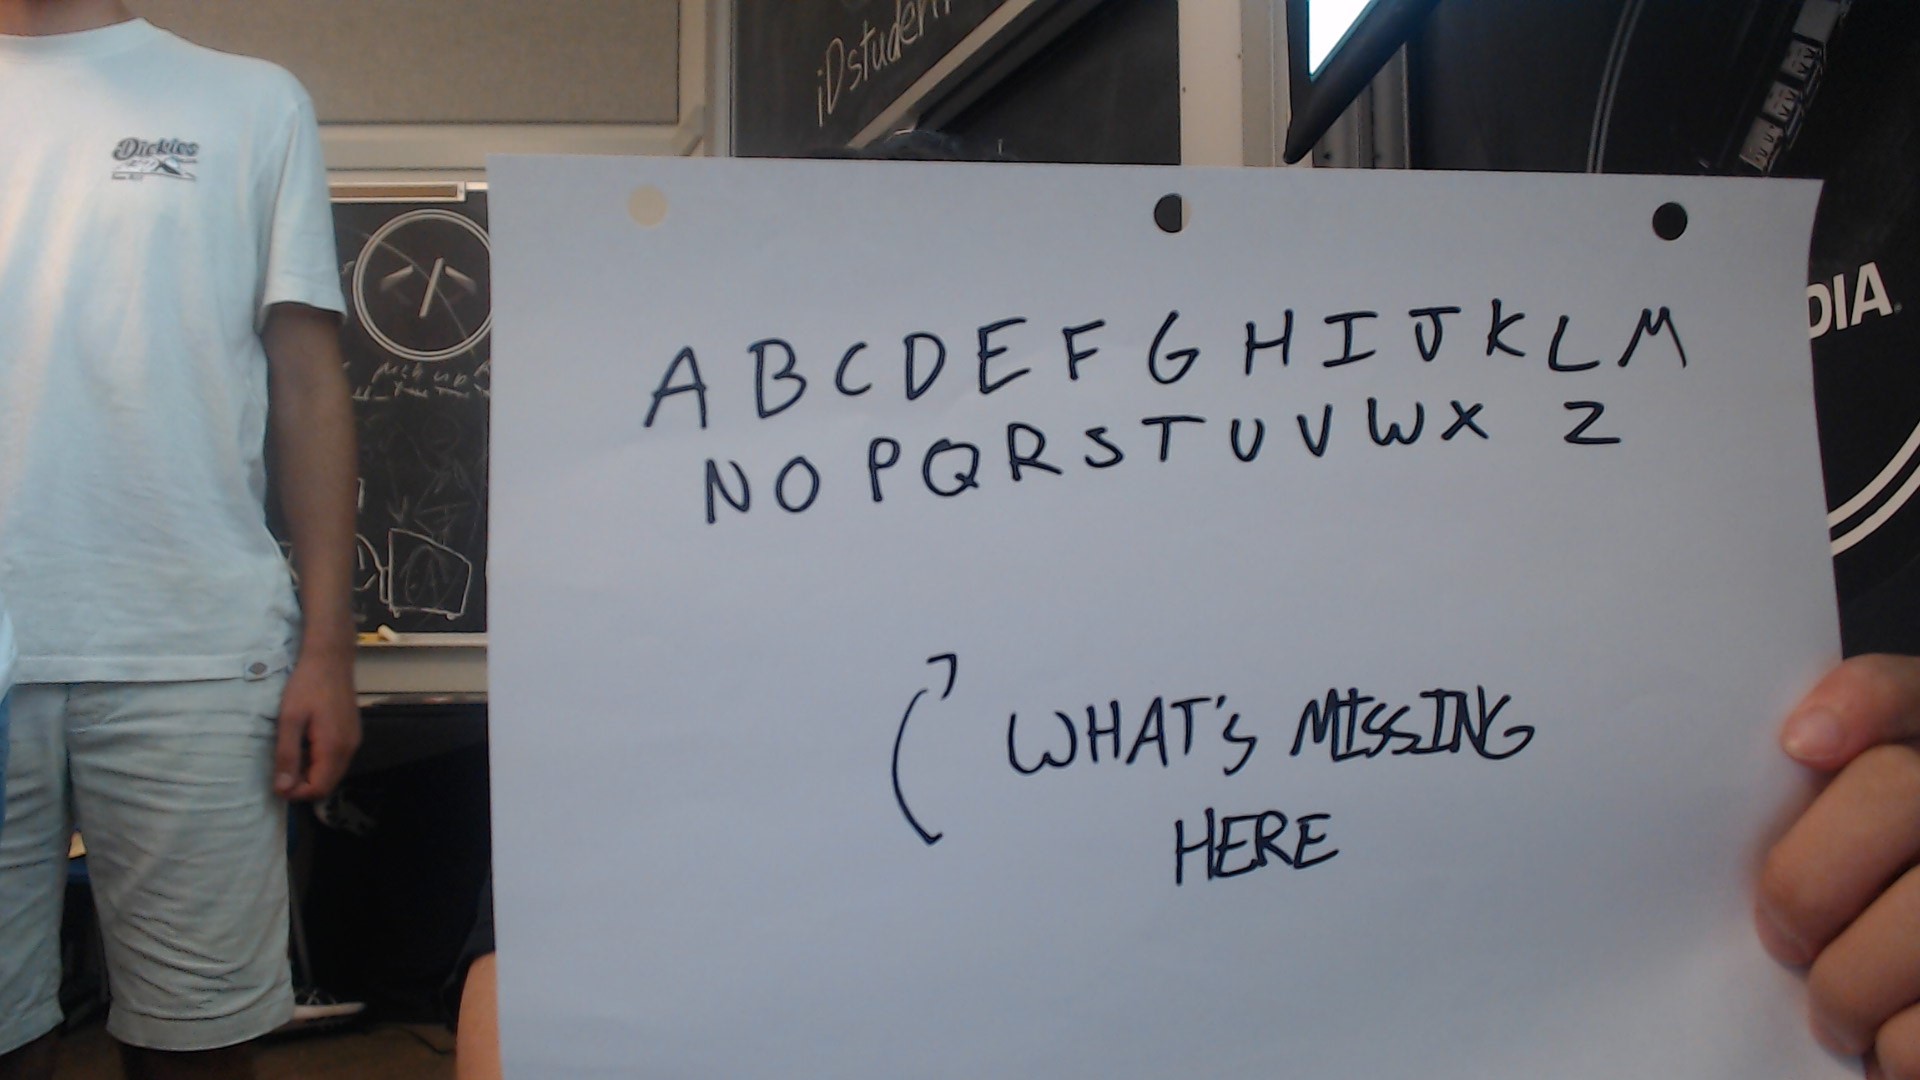 Dickies
iDstuden
DIA
A B C D E F G H I J K L M
N O P Q R S T U V W X Z
WHAT'S MISSING
HERE